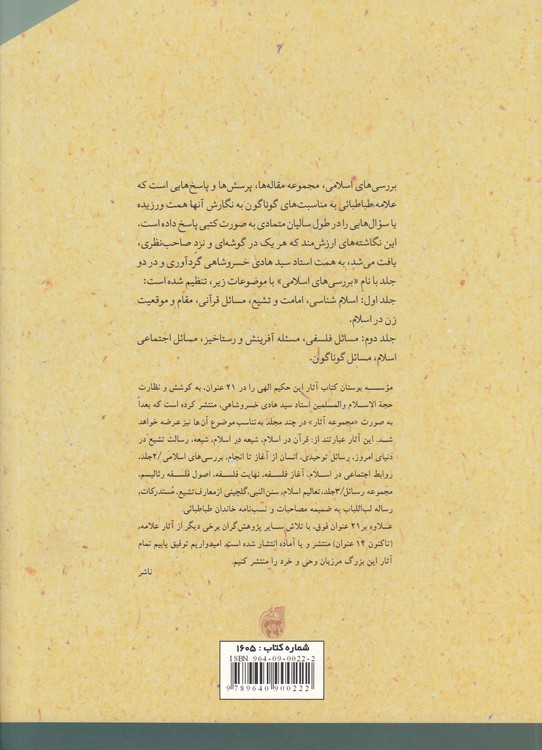 بررسی‌های اسلامی، مجموعه مقاله‌ها، پرسش‌ها و پاسخ‌هایی است که
علامه طباطبائی به مناسبت‌های گوناگون به نگارش آنها همت ورزیده
یا سؤال‌هایی را در طول سالیان متمادی به صورت کتبی پاسخ داده است.
این نگاشته‌های ارزش‌مند که هر یک در گوشه‌ای و نزد صاحب‌نظری،
یافت می‌شد، به همت استاد سید هادی خسروشاهی گردآوری و در دو
جلد با نام «بررسی‌های اسلامی» با موضوعات زیر، تنظیم شده است:
جلد اول: اسلام شناسی، امامت و تشیع، مسائل قرآنی، مقام و موقعیت
زن در اسلام.
جلد دوم: مسائل فلسفی، مسئله آفرینش و رستاخیز، مسائل اجتماعی
اسلام، مسائل گوناگون.
مؤسسه بوستان کتاب آثار این حکیم الهی را در ۲۱ عنوان، به کوشش و نظارت
حجة الاسلام والمسلمین استاد سید هادی خسروشاهی، منتشر کرده است که بعداً
به صورت «مجموعه آثار» در چند مجلد به تناسب موضوع آن‌ها نیز عرضه خواهد
شد. این آثار عبارتند از: قرآن در اسلام، شیعه در اسلام، شیعه، رسالت تشیع در
دنیای امروز، رسائل توحیدی، انسان از آغاز تا انجام، بررسی‌های اسلامی/۲جلد،
روابط اجتماعی در اسلام، آغاز فلسفه، نهایت فلسفه، اصول فلسفه رئالیسم،
مجموعه رسائل/۳جلد، تعالیم اسلام، سنن‌النبی، گلچینی ازمعارف‌تشیع، مُستدرکات،
رساله لب‌اللباب به ضمیمه مصاحبات و نسب‌نامه خاندان طباطبائی.
علاوه بر ۲۱ عنوان فوق، با تلاش سایر پژوهش‌گران برخی دیگر از آثار علامه،
(تاکنون ۱۴ عنوان) منتشر و یا آماده انتشار شده است. امیدواریم توفیق یابیم تمام
آثار این بزرگ مرزبان وحی و خرد را منتشر کنیم.
ناشر
شماره کتاب : ۱۶۰۵
ISBN 964-09-0022-2
9 789640 900222